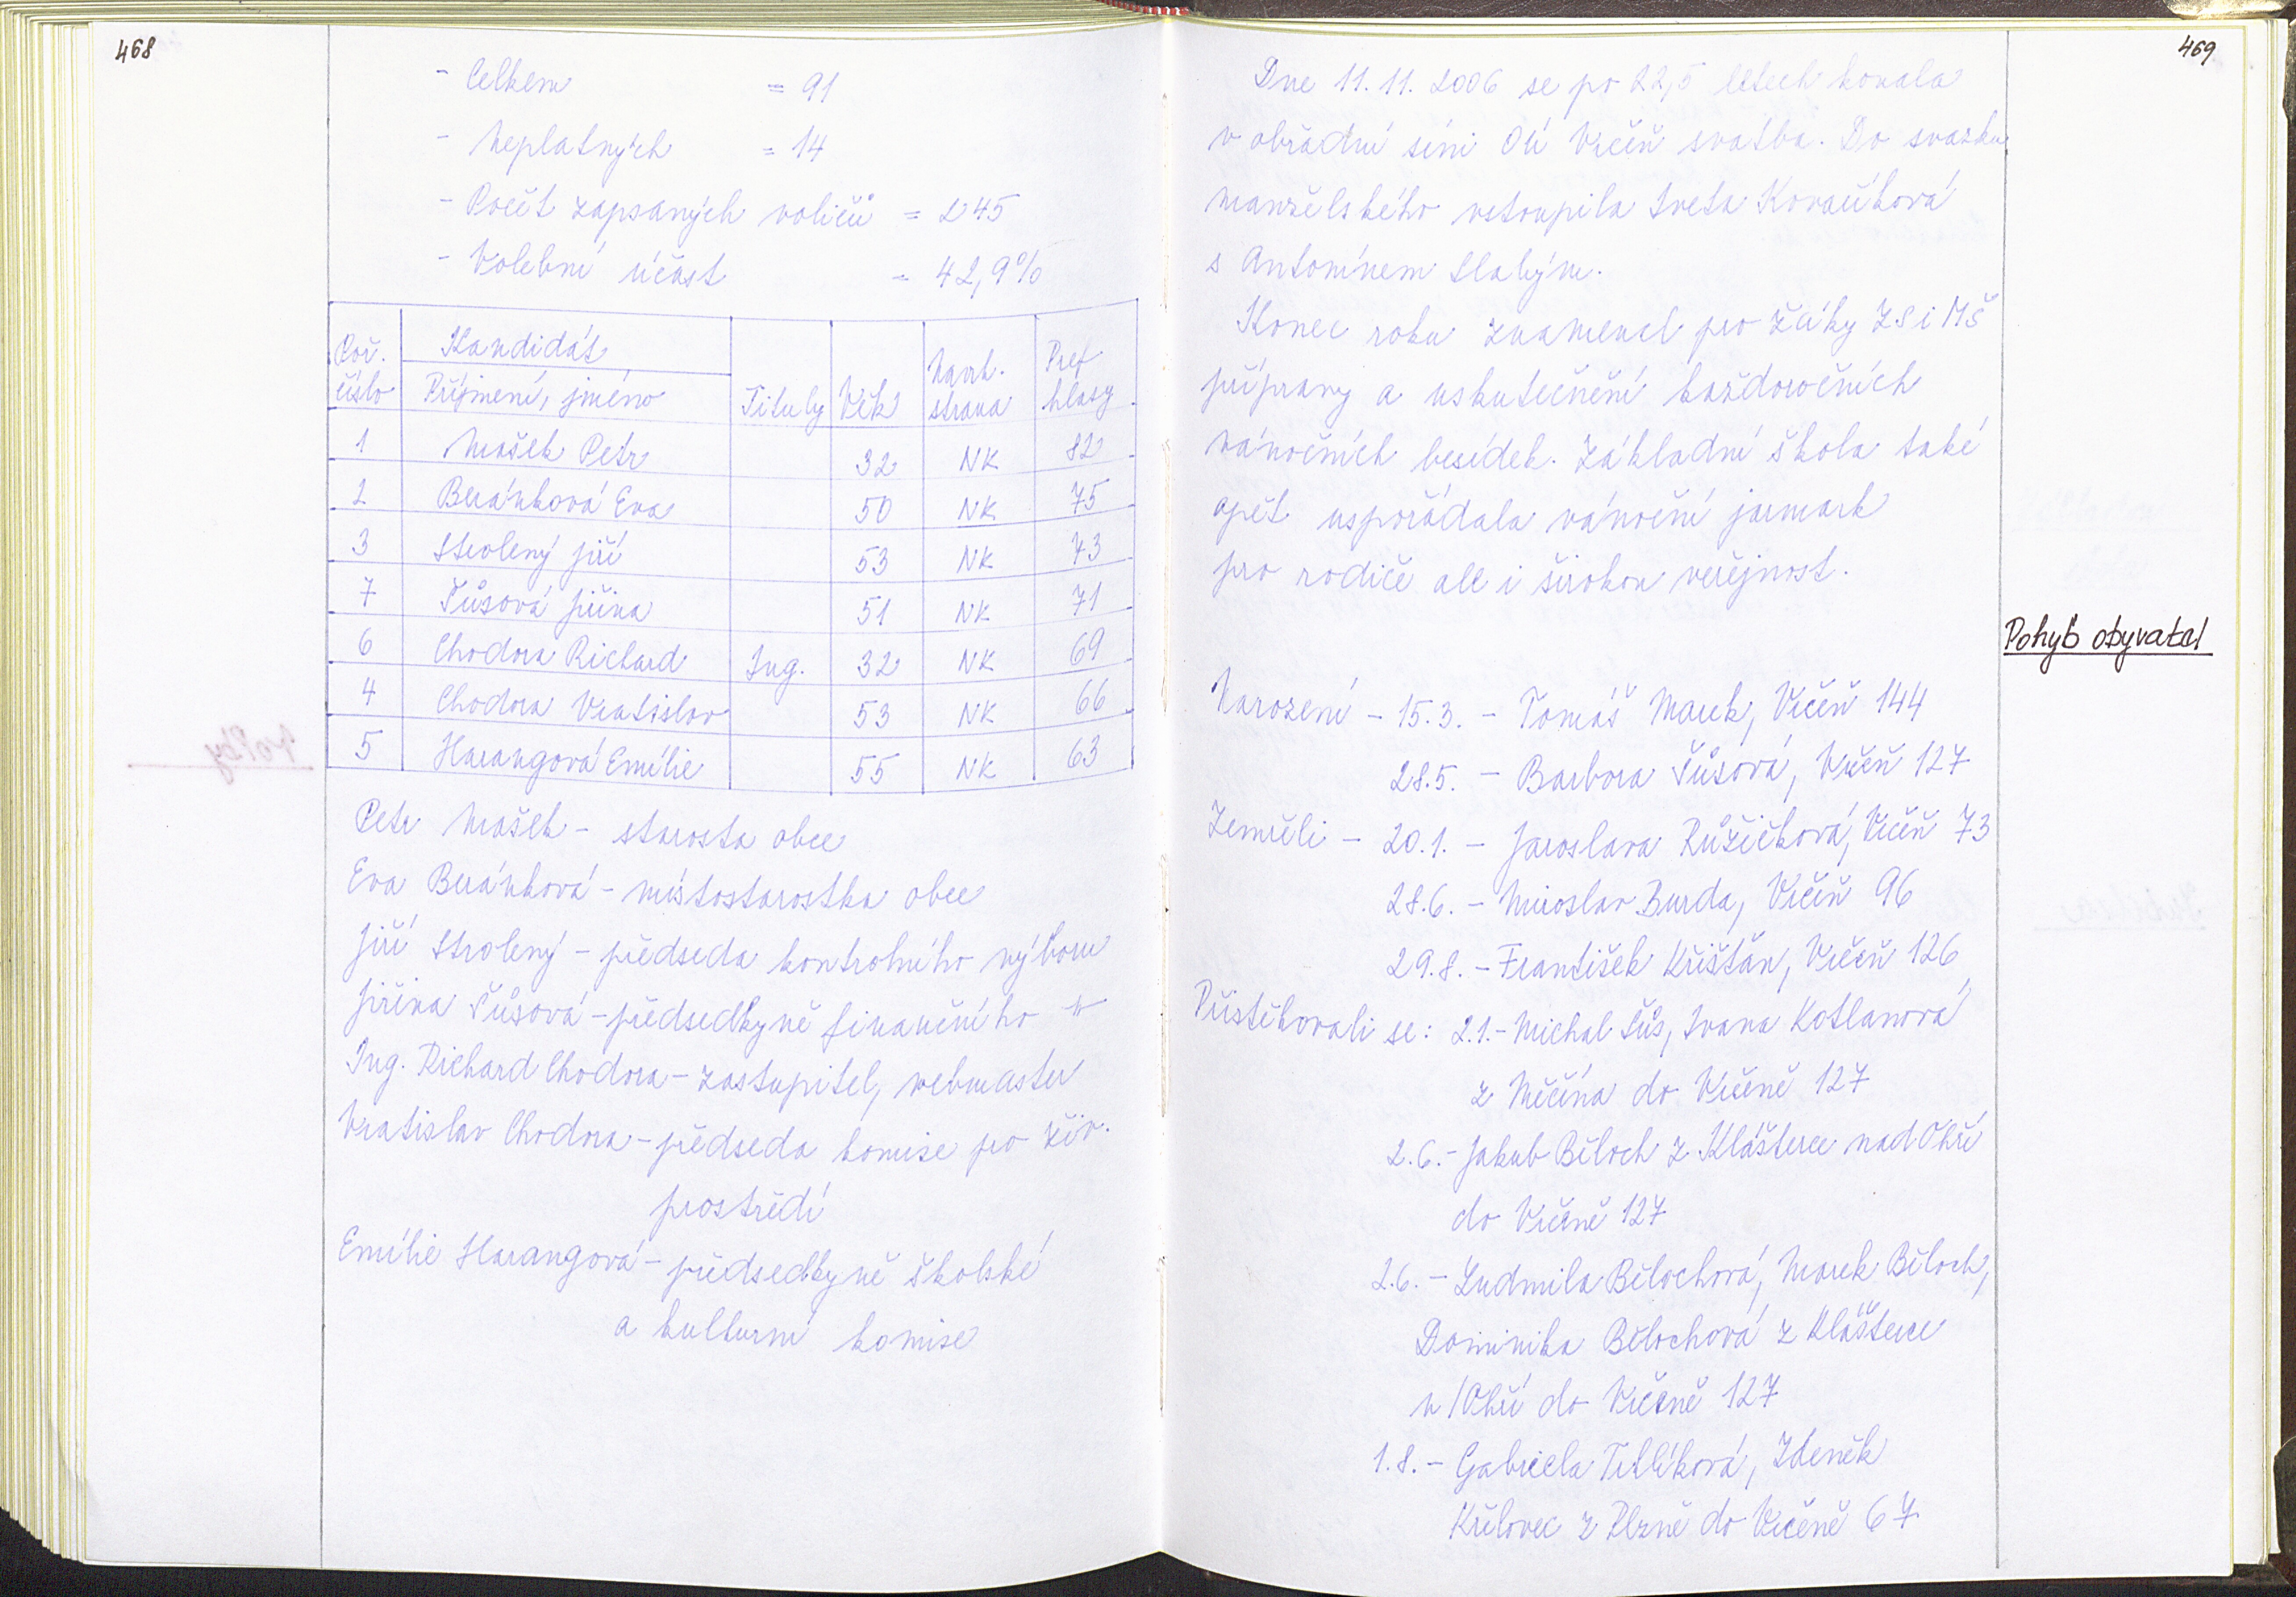 468
- Celkem = 91
- Neplatných = 14
- Počet zapsaných voličů = 245
- Volební účast = 42,9%
Poř. číslo | Kandidát Příjmení, jméno | Tituly | Věk | Navrh. strana | Pref hlasy
1 | Mašek Petr | | 32 | NK | 82
2 | Beránková Eva | | 50 | NK | 75
3 | Strolený Jiří | | 53 | NK | 73
7 | Šůsová Jiřina | | 51 | NK | 71
6 | Chodora Richard | Ing. | 32 | NK | 69
4 | Chodora Vratislav | | 53 | NK | 66
5 | Harangová Emílie | | 55 | NK | 63
Petr Mašek - starosta obce
Eva Beránková - místostarostka obce
Jiří Strolený - předseda kontrolního výboru
Jiřina Šůsová - předsedkyně finančního -"-
Ing. Richard Chodora - zastupitel, webmaster
Vratislav Chodora - předseda komise pro živ.
prostředí
Emílie Harangová - předsedkyně školské
a kulturní komise
469
Dne 11. 11. 2006 se po 22,5 letech konala
v obřadní síni OÚ Vrčeň svatba. Do svazku
manželského vstoupila Iveta Kovaříková
s Antonínem Slabým.
Konec roku znamenal pro žáky ZŠ i MŠ
přípravy a uskutečnění každoročních
vánočních besídek. Základní škola také
opět uspořádala vánoční jarmark
pro rodiče ale i širokou veřejnost.
Pohyb obyvatel
Narození - 15.3. - Tomáš Marek, Vrčeň 144
28.5. - Barbora Šůsová, Vrčeň 127
Zemřeli - 20.1. - Jaroslava Růžičková, Vrčeň 73
28.6. - Miroslav Burda, Vrčeň 96
29.8. - František Křišťán, Vrčeň 126
Přistěhovali se: 2.1. - Michal Šůs, Ivana Kotlanová
z Měčína do Vrčeně 127
2.6. - Jakub Běloch z Klášterce nad Ohří
do Vrčeně 127
2.6. - Ludmila Bělochová, Marek Běloch,
Dominika Bělochová z Klášterce
n/Ohří do Vrčeně 127
1.8. - Gabriela Tetlíková, Zdeněk
Křelovec z Plzně do Vrčeně 67